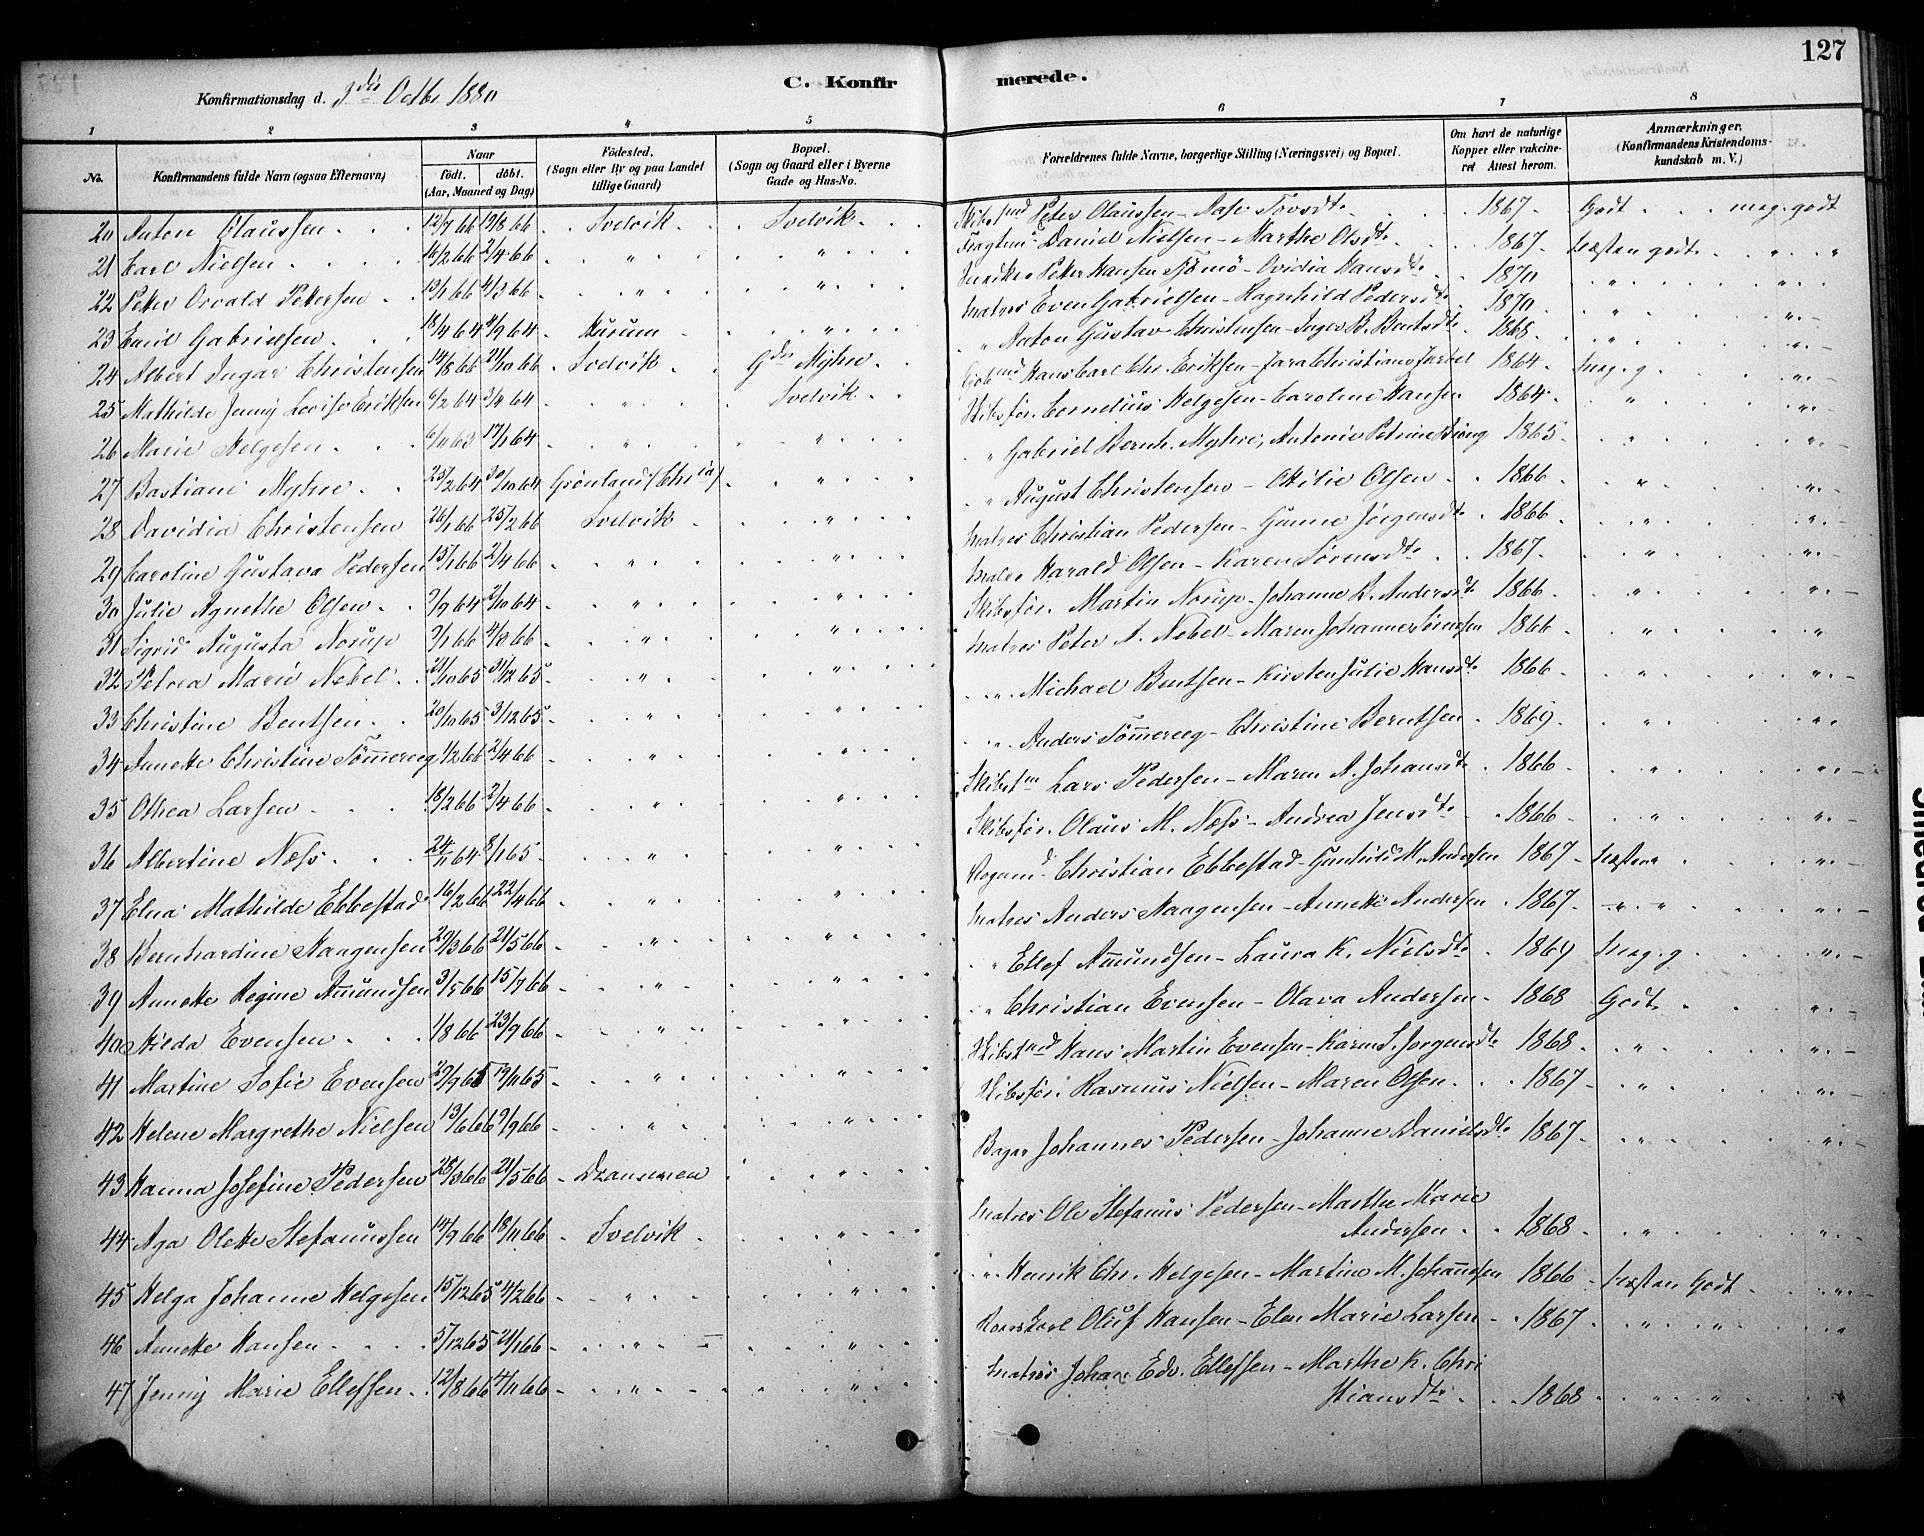 127
Konfirmationsdag d. 3die Octbr 1880
C. Konfir merede.
1 2 3 4 5 6 7 8
No. Konfirmandens fulde Navn (ogsaa Efternavn) Naar født. døbt. (Aar, Maaned og Dag) Fødested. (Sogn eller By og paa Landet tillige Gaard) Bopæl. (Sogn og Gaard eller i Byerne Gade og Hus-No. Forældrenes fulde Navne, borgerlige Stilling (Næringsvei) og Bopæl. Om havt de naturlige Kopper eller vakcineret Attest herom. Anmærkninger. (Konfirmandens Kristendomskundskab m. V.)
20 Anton Olaussen 12/7 66 19/8 66 Svelvik Svelvik Skibsmd Peter Olaussen - Aase Tovsdtr 1867 Godt meg. godt
21 Carl Nielsen 16/2 66 2/4 66 " " Daniel Nielsen - Marthe Olsdtr 1867 Næsten godt "
22 Peter Osvald Pettersen 19/1 66 4/3 66 " " Peter Hansen - Ovidia Hansdtr 1870 " "
23 Emil Gabrielsen 18/4 64 4/9 64 Hurum " Matros Even Gabrielsen - Ragnhild Pedersdtr 1870 " "
24 Albert Ingar Christensen 14/8 66 21/10 66 Svelvik Gdn Myhre " Anton Gustav Christensen - Inger B. Bentsdtr 1868 " "
25 Mathilde Jenny Lovise Eriksen 6/2 64 3/4 64 " Svelvik Hans Carl Chr. Eriksen - 1864 Meg. g "
26 Marie Helgesen 6/11 63 17/1 64 " " Skibsfør. Cornelius Helgesen - Caroline Hansen 1864 " "
27 Bastiane Myhre 25/2 64 30/10 64 Grønland (Chria) " " Gabriel Bernh. Myhre, Antonie Petrine 1865 "
28 Davidia Christensen 26/1 66 25/2 66 Svelvik " " August Christensen - Otilie Olsen 1866 " "
29 Caroline Gustava Pedersen 15/1 66 2/4 66 " " Matros Christian Pedersen - Gunne Jørgensdtr 1866 " "
30 Julie Agnethe Olsen 9/9 64 2/10 64 " " Matro Harald Olsen - Karen Sørensdtr 1867 " "
31 Sigrid Augusta Norup 9/1 66 4/3 66 " " Skibsfør. Martin Norup - Johanne K. Andersdt 1866 " "
32 Petrea Marie Nebel 21/10 65 31/12 65 " " Matros Peter A. Nebel - Maren Johanne Sørensen 1866 " "
33 Christine Bentsen 20/10 65 3/12 65 " " " Michael Bentsen - Kirsten Julie Hansdtr 1866 " "
34 Annette Christine Tømmereeg 1/2 66 2/4 66 " " " Anders Tømmereeg - Christine Berntsen 1869 " "
35 Othea Larsen 18/2 66 2/4 66 " " Skibstm Lars Pedersen - Maren A. Johansdtr 1866 " "
36 Albertine Næss 24/11 64 8/1 65 " " Skibsfør. Olaus M. Næss - Andrea Jensdtr 1866 " "
37 Elna Mathilde Ebbestad 16/2 66 22/4 66 " " Christian Ebbestad - Gunhild M. Andersen 1867 Næsten "
38 Bernhardine Haagensen 29/3 66 21/5 66 " " Matros Anders Haagensen - Annette Andersen 1867 " "
39 Annette Regine Amundsen 3/5 66 15/7 66 " " " Ellef Amundsen - Laura K. Nielsdtr 1869 Meg. g "
40 Hilda Evensen 1/8 66 23/9 66 " " " Christian Evensen - Olava Andersen 1868 Godt "
41 Martine Sofie Evensen 29/9 65 19/11 65 " " Skibstmd Hans Martin Evensen - Karen S. Jørgensdtr 1868 " "
42 Helene Margrethe Nielsen 13/6 66 9/9 66 " " Skibsfør. Rasmus Nielsen - Maren Olsen 1867 " "
43 Hanna Josefine Pedersen 28/3 66 21/5 66 Drammen " Bager Johannes Pedersen - Johanne Danielsdtr 1867 " "
44 Aga Olette Stefanussen 14/9 66 18/11 66 Svelvik " Matros Ole Stefanus Pedersen - Marthe Marie Andersen 1868 " "
45 Helga Johanne Helgesen 15/12 65 4/2 66 " " " Henrik Chr. Helgesen - Martine M. Johannsen 1866 Næsten Godt "
46 Annette Hansen 5/12 65 21/1 66 " " Oluf Hansen - Elen Marie Larsen 1867 " " "
47 Jenny Marie Ellefsen 12/8 66 4/11 66 " " Matros Johan Edv. Ellefsen - Marthe K. Chri
stiansdtr 1868 " " "